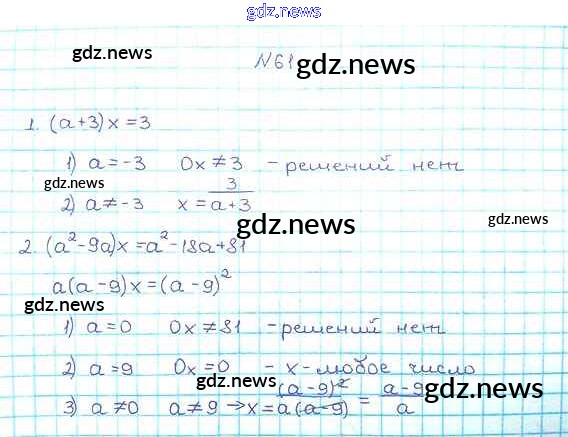 gdz.news
gdz.news
№61 gdz.news
1. (a+3)x=3
1) a=-3 0x≠3 -решений нет
gdz.news
2) a≠-3 x= 3/a+3
gdz.news
gdz.news
2. (a²-9a)x=a²-18a+81
a(a-9)x=(a-9)²
gdz.news
1) a=0 0x≠81 -решений нет
2) a=9 0x=0 - x-любое число
gdz.news
gdz.news
3) a≠0 a≠9 → x= (a-9)²/a(a-9) = a-9/a